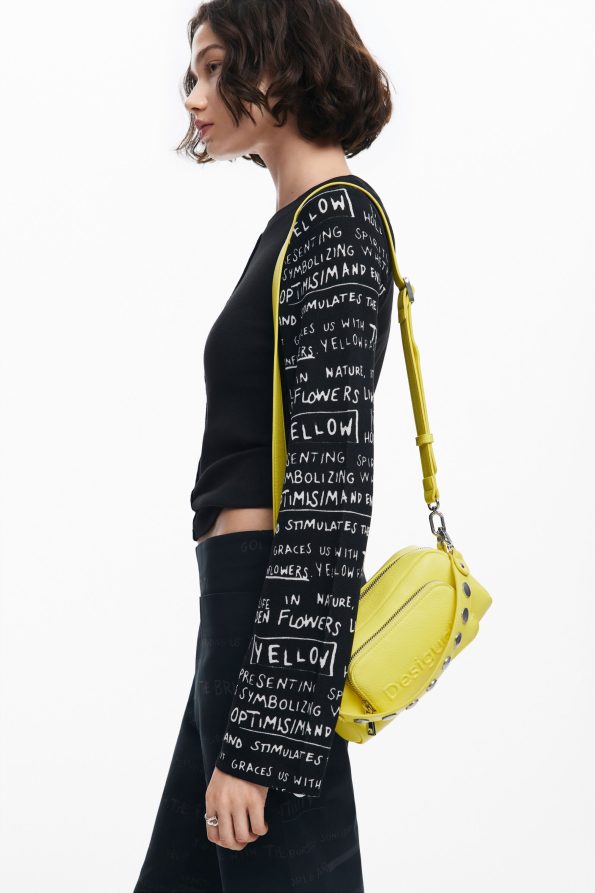 ELLOW
HOL
RESENTING SPIRI
SYMBOLIZING WHAT
OPTIMISIMAND EN
AND STIMULATES THE
GRACES US WITH
ERS. YELLOW
IN NATURE,
FLOWERS LI
ELLOW
HO
SENTING SPI
MBOLIZING WH
OPTIMISIMAND EN
D STIMULATES THE
GRACES US WITH T
FLOWERS. YE
LIFE IN NATURE,
DEN FLOWERS L
YELLOW
PRESENTING
SYMBOLIZING
OPTIMISIMAND
AND STIMULATES
GRACES US WITH
Desigual